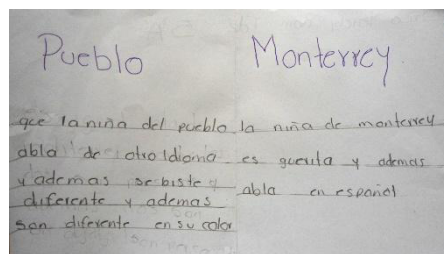 Pueblo
Monterrey
que la niña del pueblo
abla de otro Idioma
y ademas se biste
diferente y ademas
son diferente en su color
la niña de monterrey
es guerita y ademas
abla en español